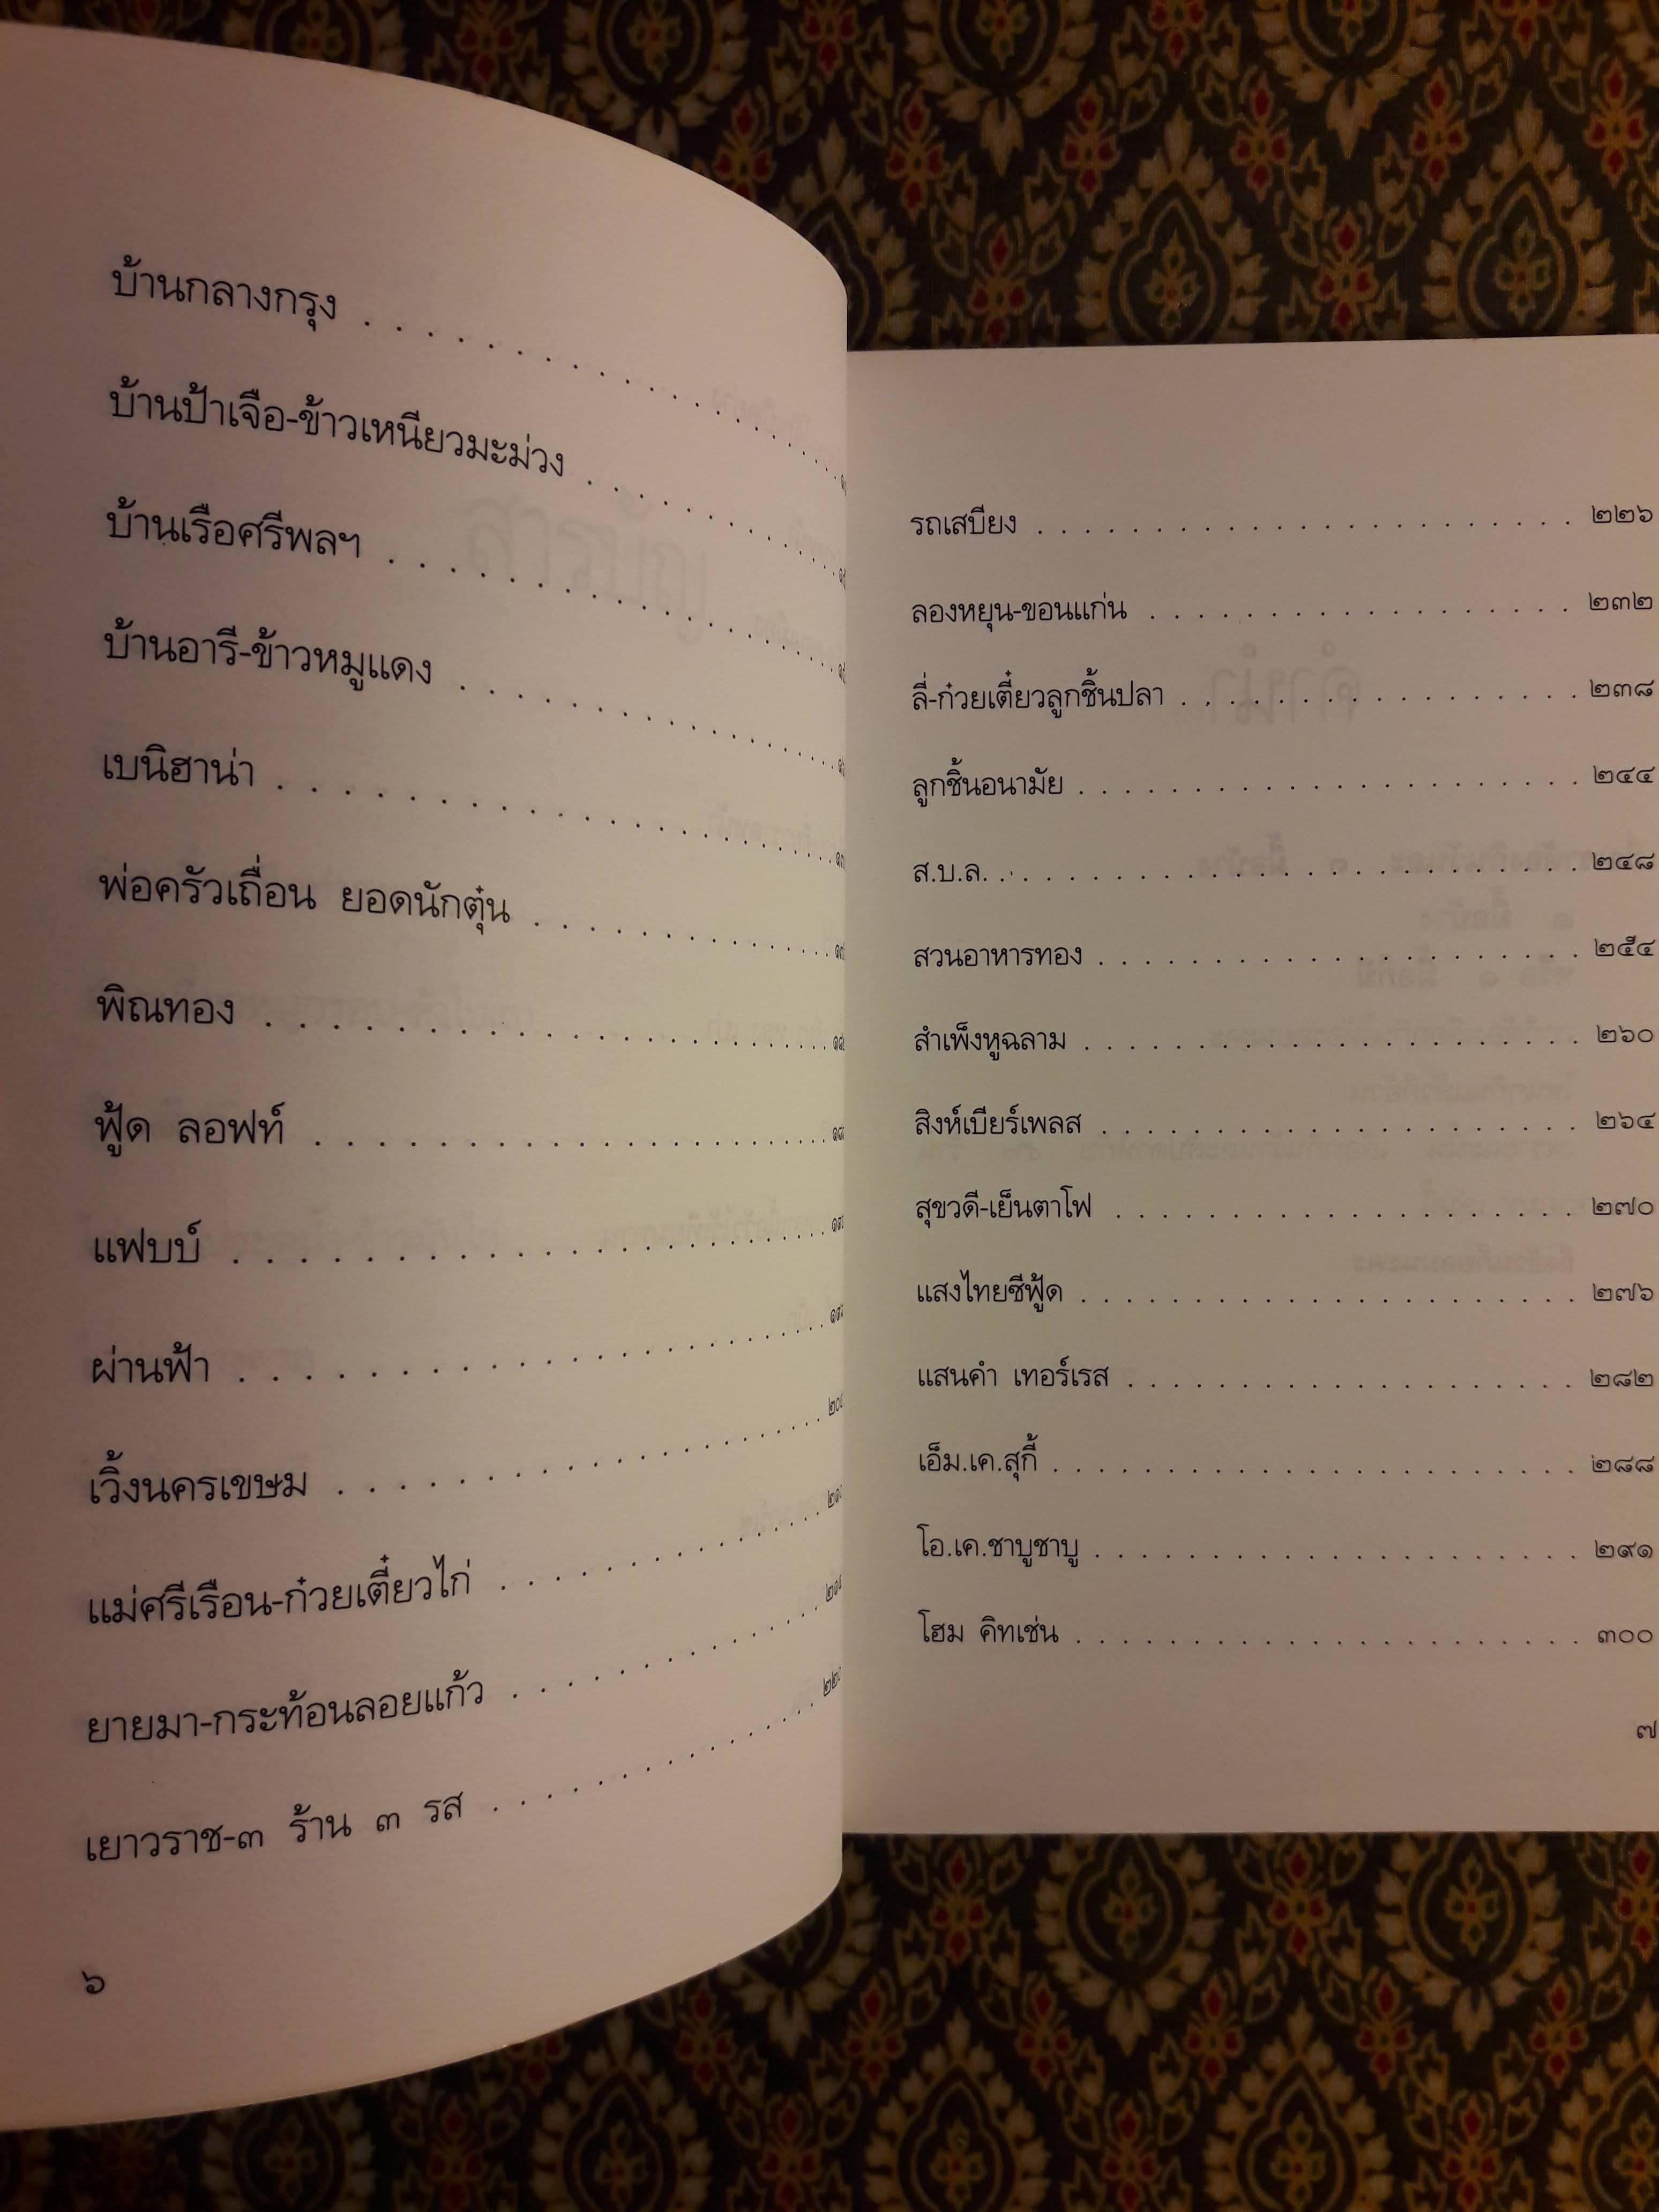 บ้านกลางกรุง
บ้านป้าเจือ-ข้าวเหนียวมะม่วง
บ้านเรือศรีพลฯ
บ้านอารี-ข้าวหมูแดง
เบนิฮาน่า
พ่อครัวเถื่อน ยอดนักตุ๋น
พิณทอง
ฟู้ด ลอฟท์
แฟบบ์
ผ่านฟ้า
เวิ้งนครเขษม
แม่ศรีเรือน-ก๋วยเตี๋ยวไก่
ยายมา-กระท้อนลอยแก้ว
เยาวราช-๓ ร้าน ๓ รส
๖
รถเสบียง . . . . . . . . . . . . . . . . . . . . . . ๒๒๖
ลองหยุน-ขอนแก่น . . . . . . . . . . . . . . . . . . ๒๓๒
ลี่-ก๋วยเตี๋ยวลูกชิ้นปลา . . . . . . . . . . . . . . . . . ๒๓๘
ลูกชิ้นอนามัย . . . . . . . . . . . . . . . . . . . . . ๒๔๔
ส.บ.ล. . . . . . . . . . . . . . . . . . . . . . . . . ๒๔๘
สวนอาหารทอง . . . . . . . . . . . . . . . . . . . . ๒๕๔
สำเพ็งหูฉลาม . . . . . . . . . . . . . . . . . . . . . ๒๖๐
สิงห์เบียร์เพลส . . . . . . . . . . . . . . . . . . . . ๒๖๔
สุขวดี-เย็นตาโฟ . . . . . . . . . . . . . . . . . . . . ๒๗๐
แสงไทยซีฟู้ด . . . . . . . . . . . . . . . . . . . . . ๒๗๖
แสนคำ เทอร์เรส . . . . . . . . . . . . . . . . . . . ๒๘๒
เอ็ม.เค.สุกี้ . . . . . . . . . . . . . . . . . . . . . . ๒๘๘
โอ.เค.ชาบูชาบู . . . . . . . . . . . . . . . . . . . . . ๒๙๑
โฮม คิทเช่น . . . . . . . . . . . . . . . . . . . . . . ๓๐๐
๗